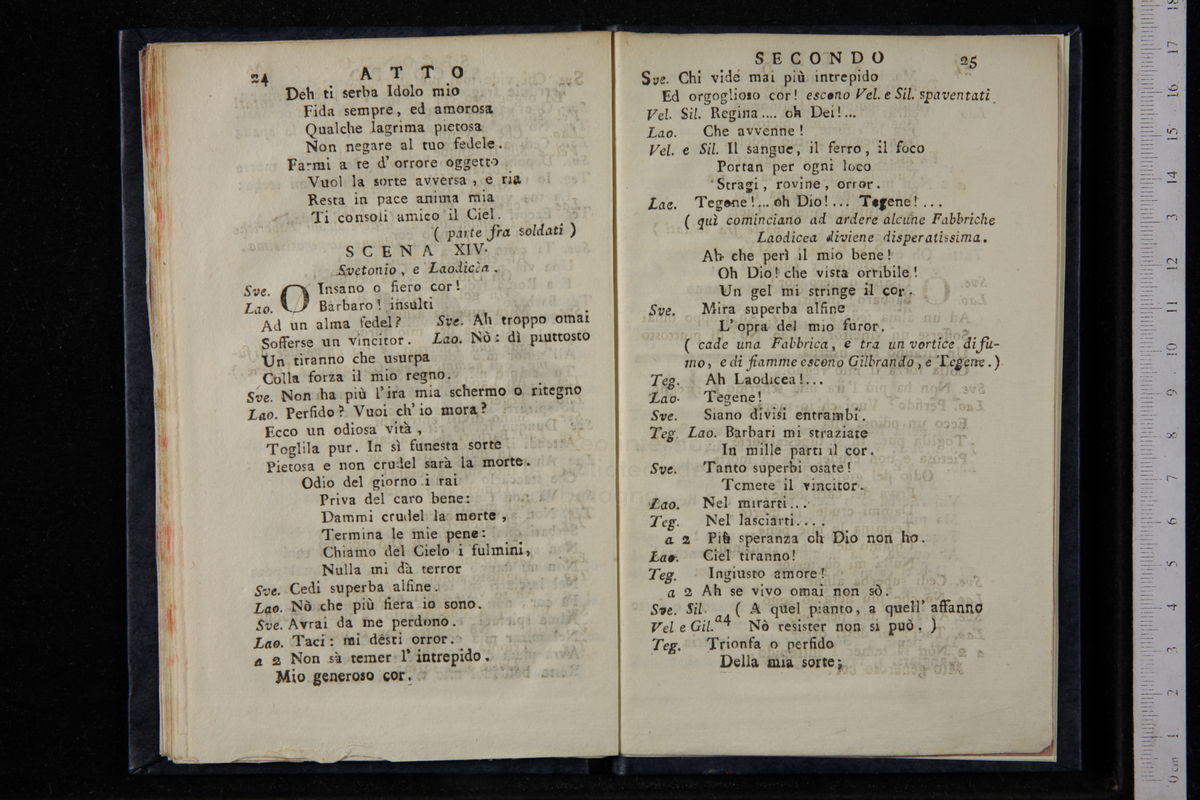 24 ATTO
Deh ti serba Idolo mio
Fida sempre, ed amorosa
Qualche lagrima pietosa
Non negare al tuo fedele.
Farmi a te d' orrore oggetto
Vuol la sorte avversa, e ria
Resta in pace anima mia
Ti consoli amico il Ciel.
( parte fra soldati )
SCENA XIV.
Svetonio, e Laodicea.
Sve. O Insano o fiero cor!
Lao. Barbaro! insulti
Ad un alma fedel? Sve. Ah troppo omai
Sofferse un vincitor. Lao. Nò: dì piuttosto
Un tiranno che usurpa
Colla forza il mio regno.
Sve. Non ha più l'ira mia schermo o ritegno
Lao. Perfido? Vuoi ch'io mora?
Ecco un odiosa vità,
Toglila pur. In sì funesta sorte
Pietosa e non crudel sarà la morte.
Odio del giorno i rai
Priva del caro bene:
Dammi crudel la morte,
Termina le mie pene:
Chiamo del Cielo i fulmini,
Nulla mi dà terror
Sve. Cedi superba alfine.
Lao. Nò che più fiera io sono.
Sve. Avrai da me perdono.
Lao. Taci: mi desti orror.
a 2 Non sà temer l' intrepido.
Mio generoso cor.
SECONDO 25
Sve. Chi vide mai più intrepido
Ed orgoglioso cor! escono Vel. e Sil. spaventati.
Vel. Sil. Regina.... oh Dei!...
Lao. Che avvenne!
Vel. e Sil. Il sangue, il ferro, il foco
Portan per ogni loco
Stragi, rovine, orror.
Lao. Tegene!... oh Dio!... Tegene!...
( quì cominciano ad ardere alcune Fabbriche
Laodicea diviene disperatissima.
Ah che perì il mio bene!
Oh Dio! che vista orribile!
Un gel mi stringe il cor.
Sve. Mira superba alfine
L'opra del mio furor.
( cade una Fabbrica, e tra un vortice di fu-
mo, e di fiamme escono Gilbrando, e Tegene.)
Teg. Ah Laodicea!...
Lao. Tegene!
Sve. Siano divisi entrambi.
Teg. Lao. Barbari mi straziate
In mille parti il cor.
Sve. Tanto superbi osate!
Temete il vincitor.
Lao. Nel mirarti...
Teg. Nel lasciarti....
a 2 Più speranza oh Dio non ho.
Lao. Ciel tiranno!
Teg. Ingiusto amore!
a 2 Ah se vivo omai non sò.
Sve. Sil. ( A quel pianto, a quell' affanno
Vel e Gil. a4 Nò resister non si può. )
Teg. Trionfa o perfido
Della mia sorte;